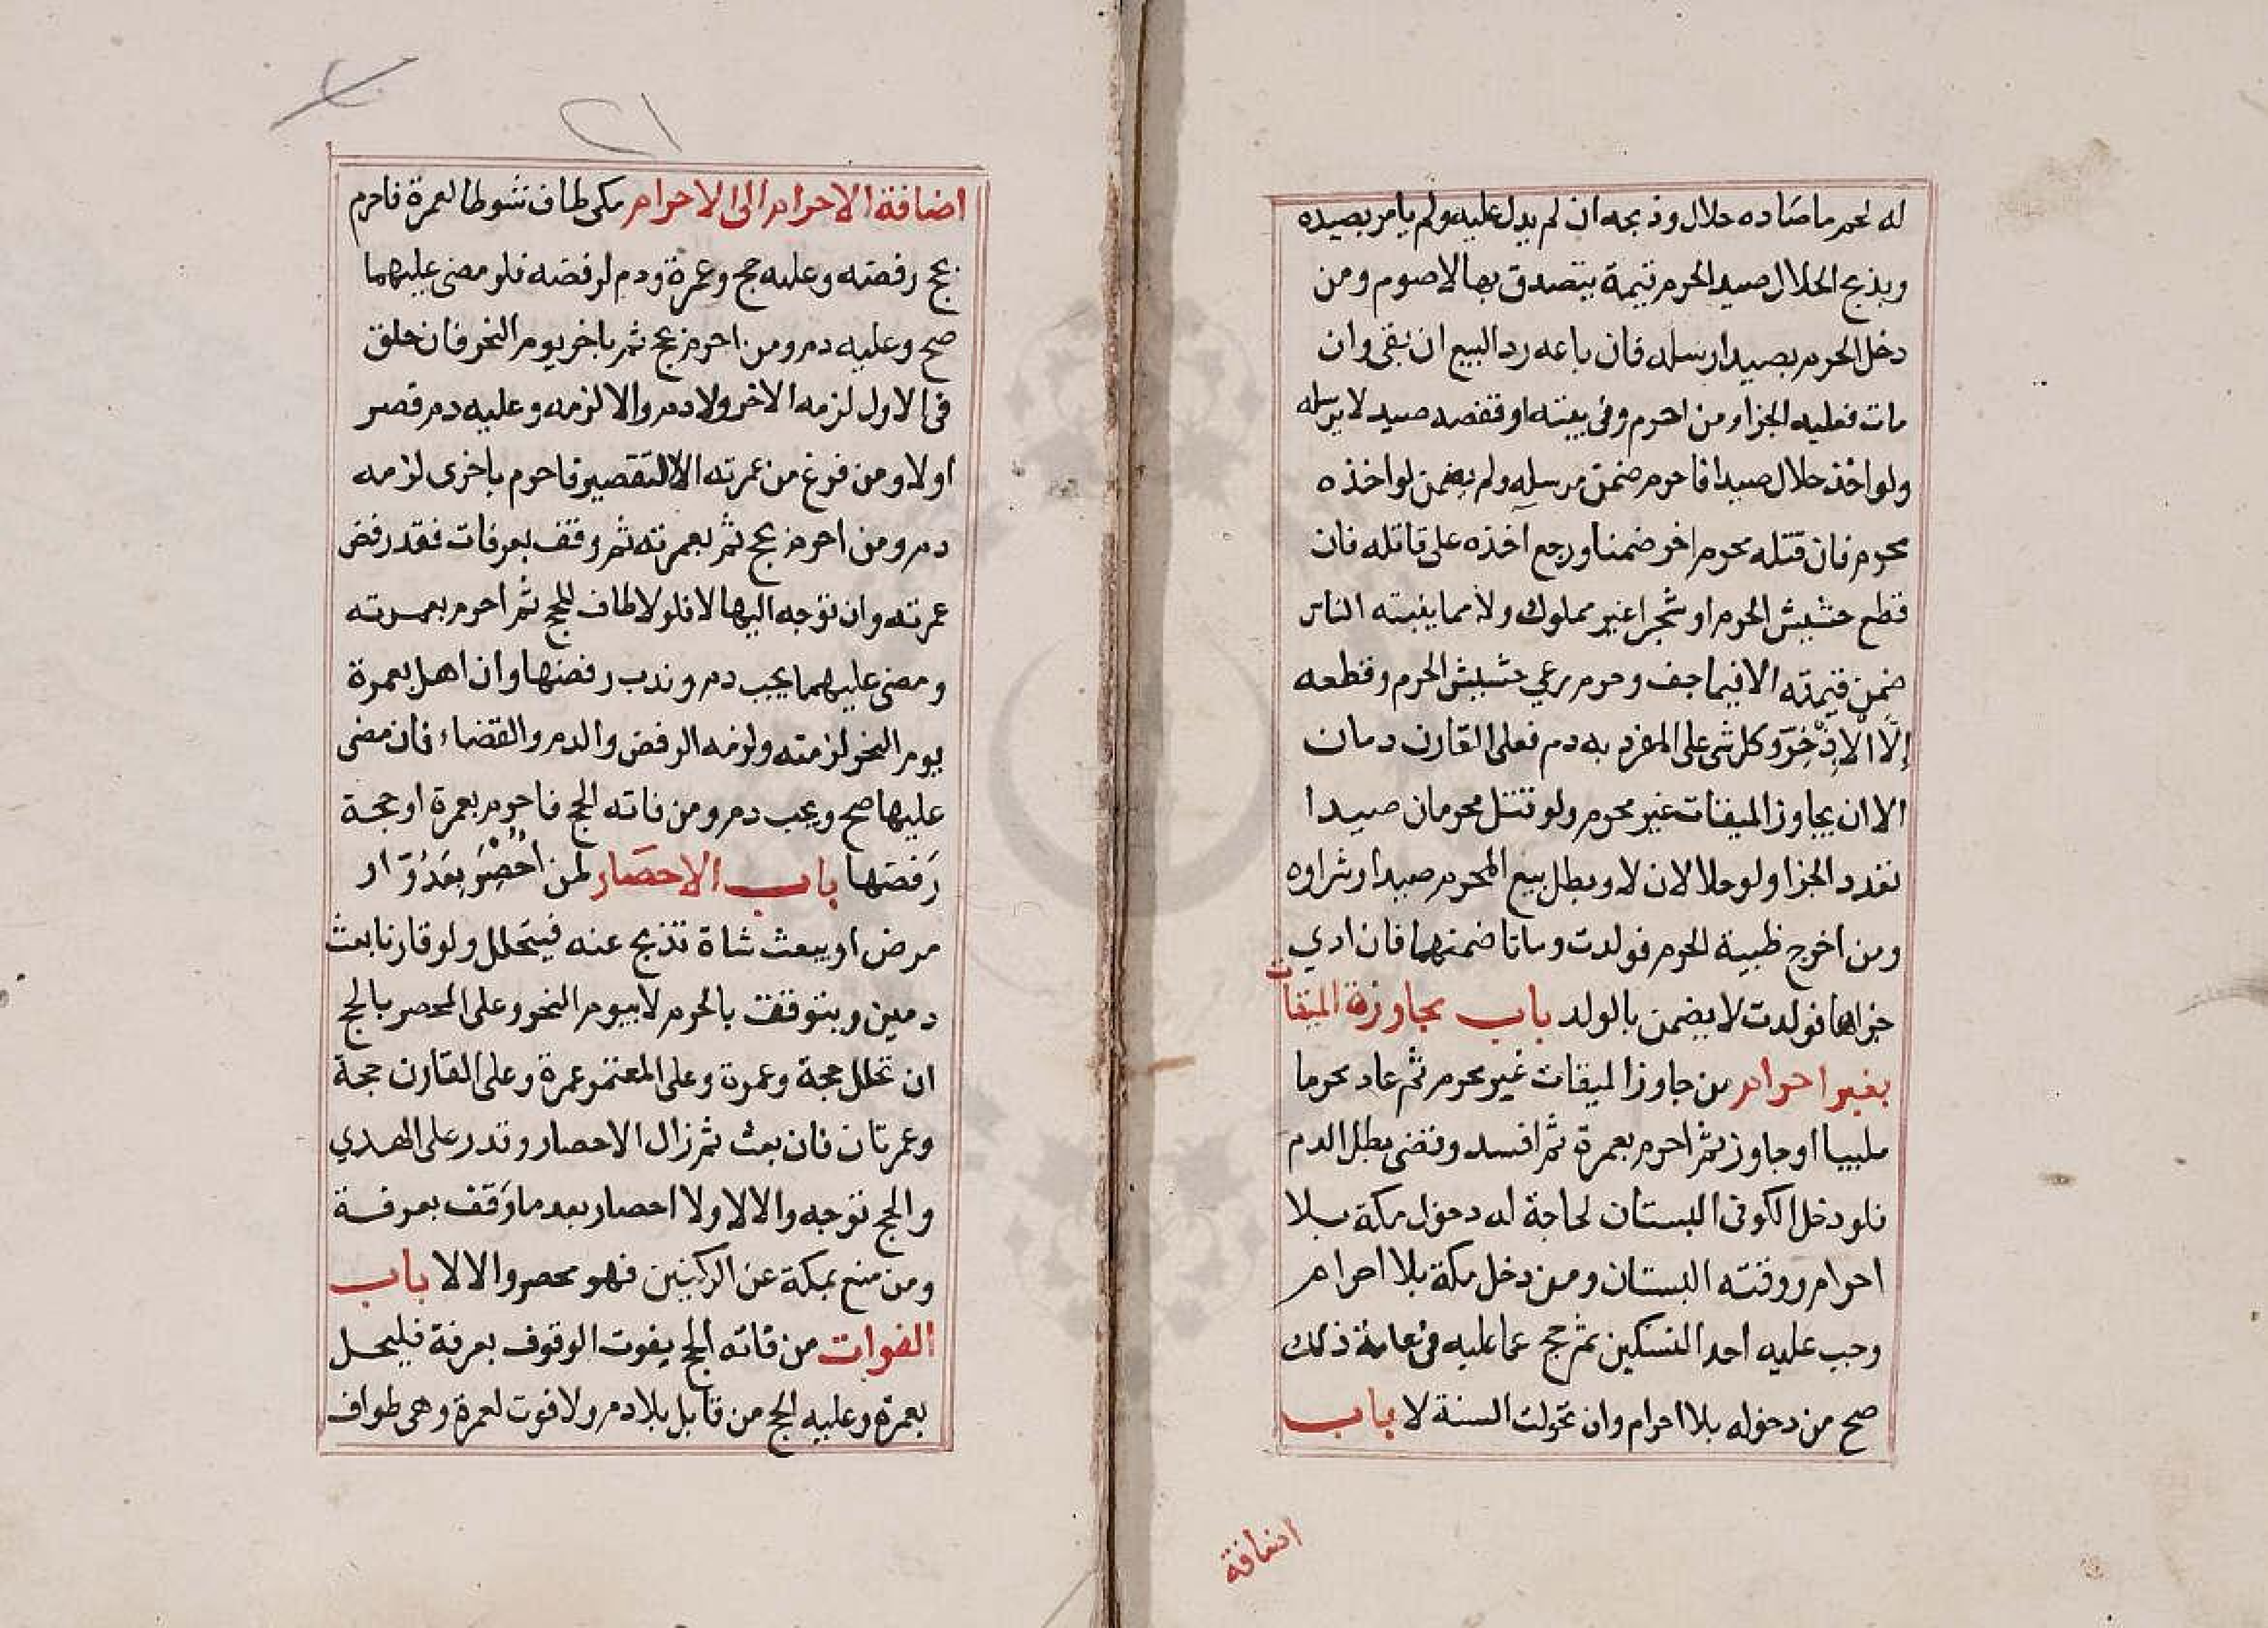 له لحم ما صاده حلال وذبحه ان لم يدل عليه ولم يامر بصيده
وبذبح الحلال صيد الحرم قيمة يتصدق بها لا صوم ومن
دخل الحرم بصيد ارسله فان باعه رد البيع ان بقى وان
مات فعليه الجزا ومن احرم وفى بيته او قفصه صيد لا يرسله
ولو اخذ حلال صيدا فاحرم ضمن مرسله ولم يضمن لو اخذه
محرم فان قتله محرم اخر ضمنا ورجع اخذه على قاتله فان
قطع حشيش الحرم او شجرا غير مملوك ولا مما ينبته الناس
ضمن قيمته الا فيما جف وحرم رعي حشيش الحرم وقطعه
إلا الإذخر وكل شى على المفرد به دم فعلى القارن دمان
الا ان يجاوز الميقات غير محرم ولو قتل محرمان صيدا
تعدد الجزا ولو حلالان لا وبطل بيع المحرم صيدا وشراوه
ومن اخرج ظبية الحرم فولدت وماتا ضمنهما فان ادي
جزاها فولدت لا يضمن بالولد باب مجاوزة الميقات
بغير احرام من جاوز الميقات غير محرم ثم عاد محرما
ملبيا او جاوز ثم احرم بعمرة ثم افسد وقضى بطل الدم
فلو دخل الكوفى البستان لحاجة له دخول مكة بلا
احرام ووقته البستان ومن دخل مكة بلا احرام
وجب عليه احد النسكين ثم حج عما عليه فى عامة ذلك
صح من دخوله بلا احرام وان تحولت السنة لا باب
اضافة
٢١
اضافة الاحرام الى الاحرام مكى طاف شوطا لعمرة فاحرم
بحج رفضه وعليه حج وعمرة ودم لرفضه فلو مضى عليهما
صح وعليه دم ومن احرم بحج ثم باخر يوم النحر فان حلق
فى الاول لزمه الاخر ولا دم والا لزمه وعليه دم قصر
اولا ومن فرغ من عمرته الا التقصير فاحرم باخرى لزمه
دم ومن احرم بحج ثم بعمرته ثم وقف بعرفات فقد رفض
عمرته وان توجه اليها لا فلو لا طاف للحج ثم احرم بعمرته
ومضى عليهما يجب دم وندب رفضها وان اهل بعمرة
يوم النحر لزمته ولزمه الرفض والدم والقضاء فان مضى
عليها صح ويجب دم ومن فاته الحج فاحرم بعمرة او حجة
رفضها باب الاحصار لمن احصر بعدو ار
مرض او يبعث شاة تذبح عنه فيتحلل ولو قارنا بعث
دمين ويتوقف بالحرم لا بيوم النحر وعلى المحصر بالحج
ان تحلل حجة وعمرة وعلى المعتمر عمرة وعلى القارن حجة
وعمرتان فان بعث ثم زال الاحصار وقدر على الهدي
والحج توجه والا لا ولا احصار بعد ما وقف بعرفة
ومن منع بمكة عن الركنين فهو محصر والا لا باب
الفوات من فاته الحج يفوت الوقوف بعرفة فليحل
بعمرة وعليه الحج من قابل بلا دم ولا فوت لعمرة وهى طواف